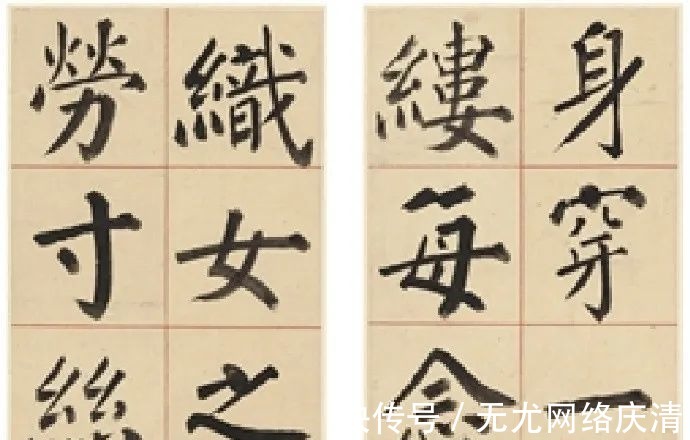 身穿一
縷每念
織女之
勞寸絲
快传号 / 无尤网络庆清